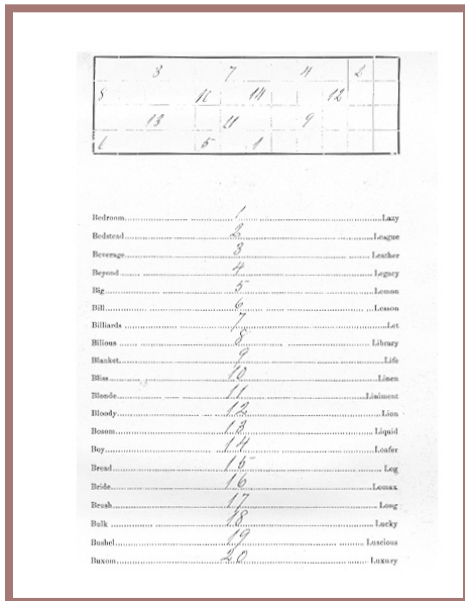 3 7 4 2
8 14 12
13 11 9
6 5 1
Bedroom 1 Lazy
Bedstead 2 League
Beverage 3 Leather
Beyond 4 Legacy
Big 5 Lemon
Bill 6 Lesson
Billiards 7 Let
Bilious 8 Library
Blanket 9 Life
Bliss 10 Linen
Blonde 11 Liniment
Bloody 12 Lion
Bosom 13 Liquid
Boy 14 Loafer
Bread 15 Log
Bride 16 Lomax
Brush 17 Long
Bulk 18 Lucky
Bushel 19 Luscious
Buxom 20 Luxury